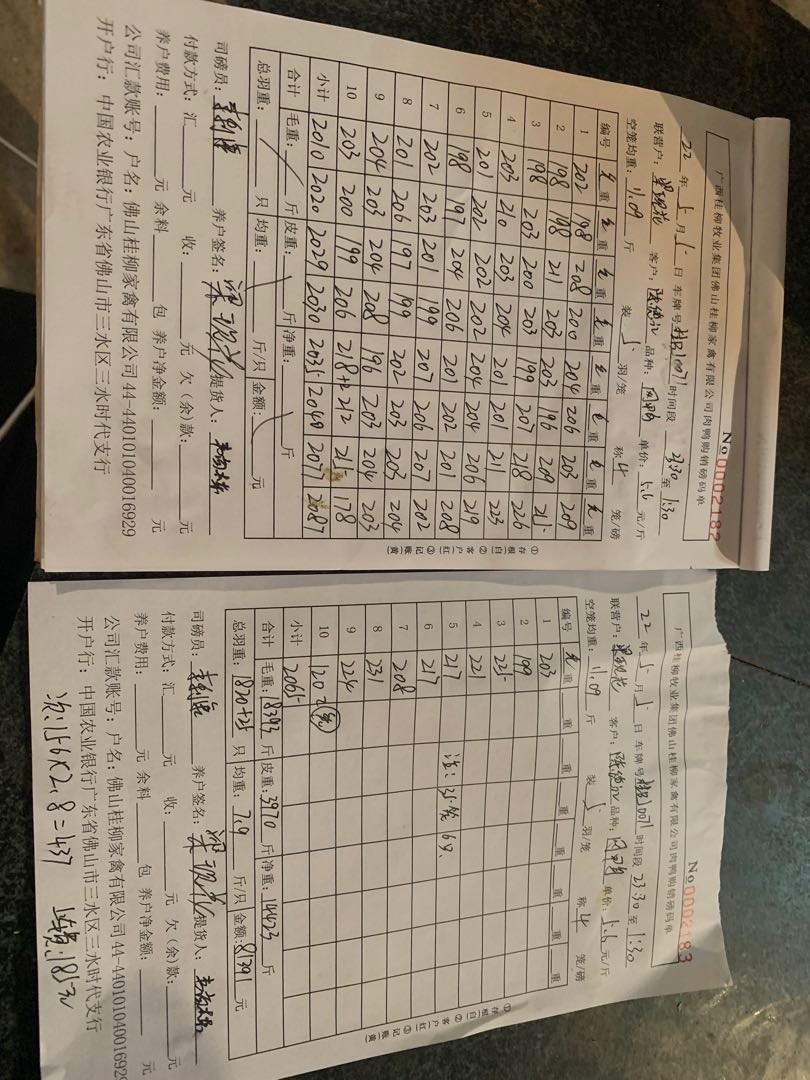 广西桂柳牧业集团佛山桂柳家禽有限公司肉鸭购销磅码单
No 0002182
22 年 5 月 5 日 车牌号 10071 时间段 23:30 至 1:30
联营户: 客户: 品种: 单价: 5.6 元/斤
空笼均重: 11.09 斤 装 5 羽/笼 称 4 笼/磅
编号 毛重 毛重 毛重 毛重 毛重 毛重 毛重 毛重
1 202 198 208 200 204 206 203 209
2 198 198 211 203 203 196 209 215
3 198 203 200 203 199 207 218 226
4 203 210 203 204 201 201 211 223
5 201 202 202 202 204 204 206 219
6 198 197 204 206 201 202 201 208
7 202 203 201 199 207 206 207 202
8 201 206 197 199 202 203 203 204
9 204 203 204 208 196 203 204 203
10 203 200 199 206 218 212 215 178
小计 2010 2020 2029 2030 2035 2040 2077 2087
合计 毛重: 斤 皮重: 斤 净重: 斤
总羽重: 只 均重: 斤/只 金额: 元
司磅员: 养户签名: 提货人:
付款方式: 汇 元 收: 元 欠(余)款: 元
养户费用: 元 余料 包 养户净金额: 元
公司汇款账号: 户名: 佛山桂柳家禽有限公司 44-440101040016929
开户行: 中国农业银行广东省佛山市三水区三水时代支行
①存根(白) ②客户(红) ③记账(黄)
广西桂柳牧业集团佛山桂柳家禽有限公司肉鸭购销磅码单
No 0002183
22 年 5 月 5 日 车牌号 10071 时间段 23:30 至 1:30
联营户: 客户: 品种: 单价: 5.6 元/斤
空笼均重: 11.09 斤 装 5 羽/笼 称 4 笼/磅
编号 毛重 重 重 重 重 重 重 重
1 203
2 199
3 225
4 221
5 217
6 217
7 208
8 231
9 224
10 120
小计 2065
合计 毛重: 18393 斤 皮重: 3970 斤 净重: 14423 斤
总羽重: 1820+25 只 均重: 7.9 斤/只 金额: 81391 元
司磅员: 养户签名: 提货人:
付款方式: 汇 元 收: 元 欠(余)款: 元
养户费用: 元 余料 包 养户净金额: 元
公司汇款账号: 户名: 佛山桂柳家禽有限公司 44-440101040016929
开户行: 中国农业银行广东省佛山市三水区三水时代支行
①存根(白) ②客户(红) ③记账(黄)